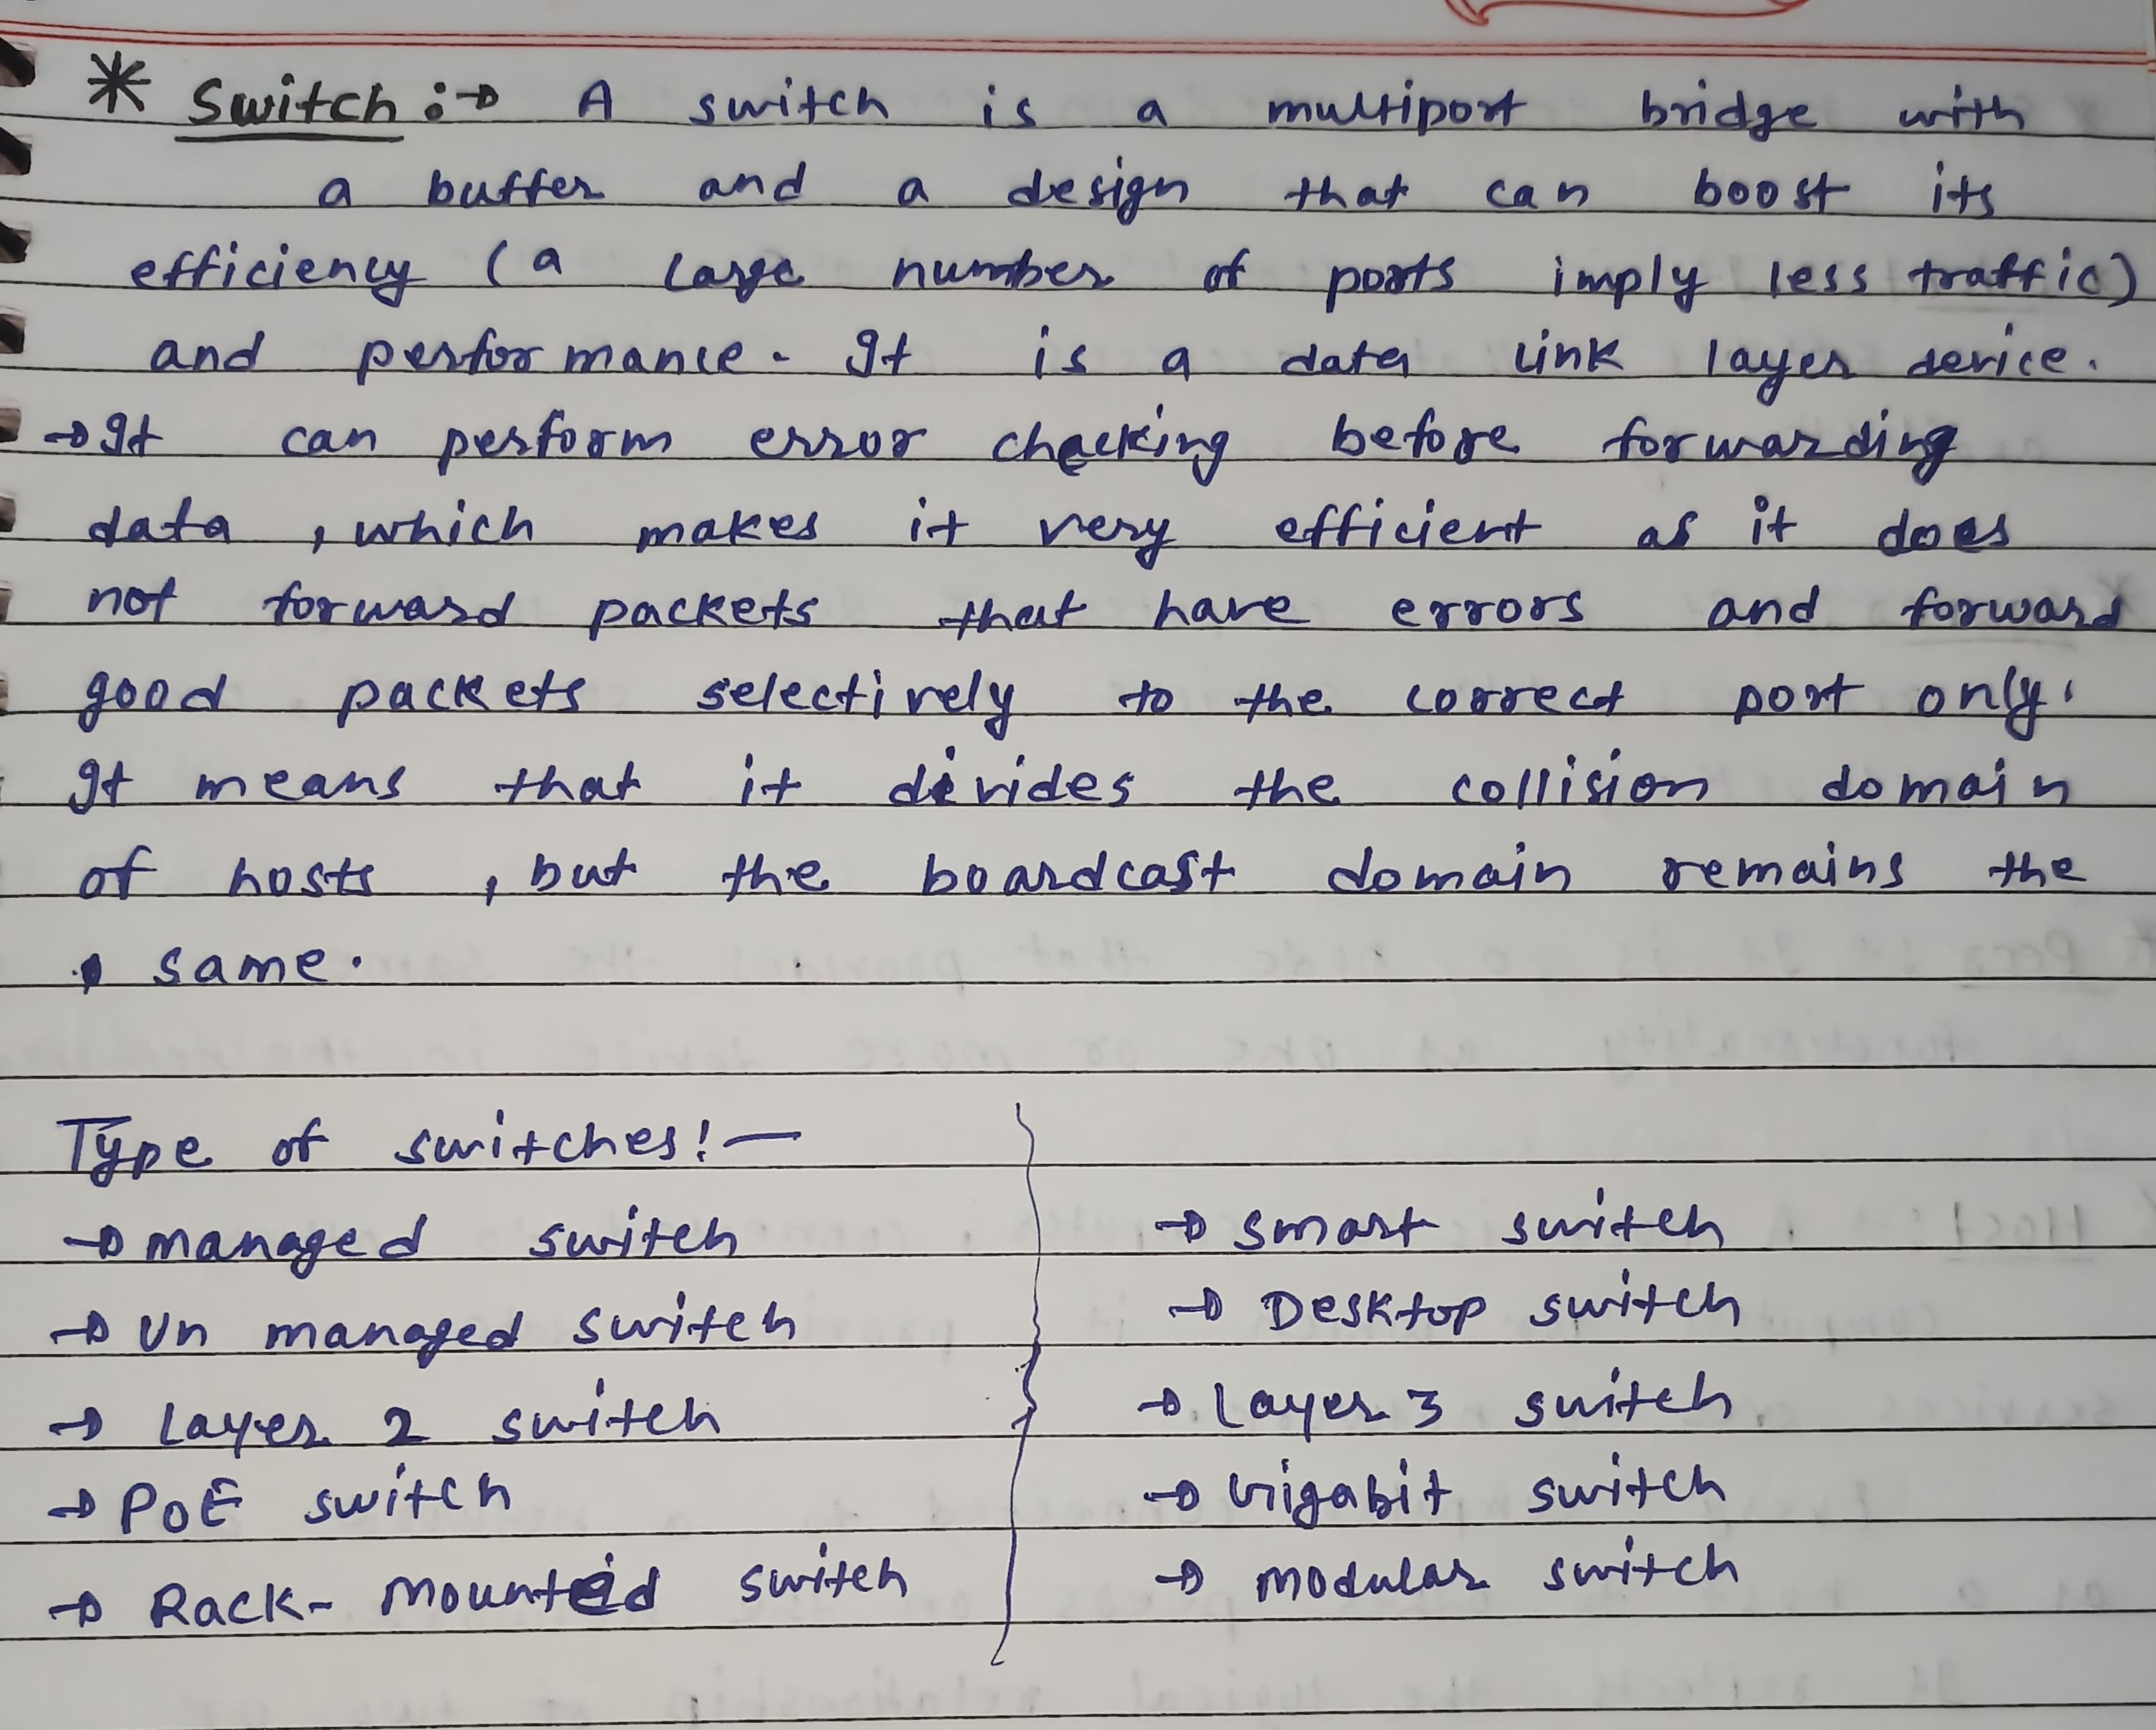 * Switch :→ A switch is a multiport bridge with
a buffer and a design that can boost its
efficiency (a large number of ports imply less traffic)
and performance. It is a data link layer device.
→ It can perform error checking before forwarding
data, which makes it very efficient as it does
not forward packets that have errors and forward
good packets selectively to the correct port only.
It means that it divides the collision domain
of hosts, but the boardcast domain remains the
same.
Type of switches:—
→ managed switch
→ Un managed switch
→ Layer 2 switch
→ PoE switch
→ Rack- mounted switch
→ smart switch
→ Desktop switch
→ Layer 3 switch
→ Gigabit switch
→ modular switch